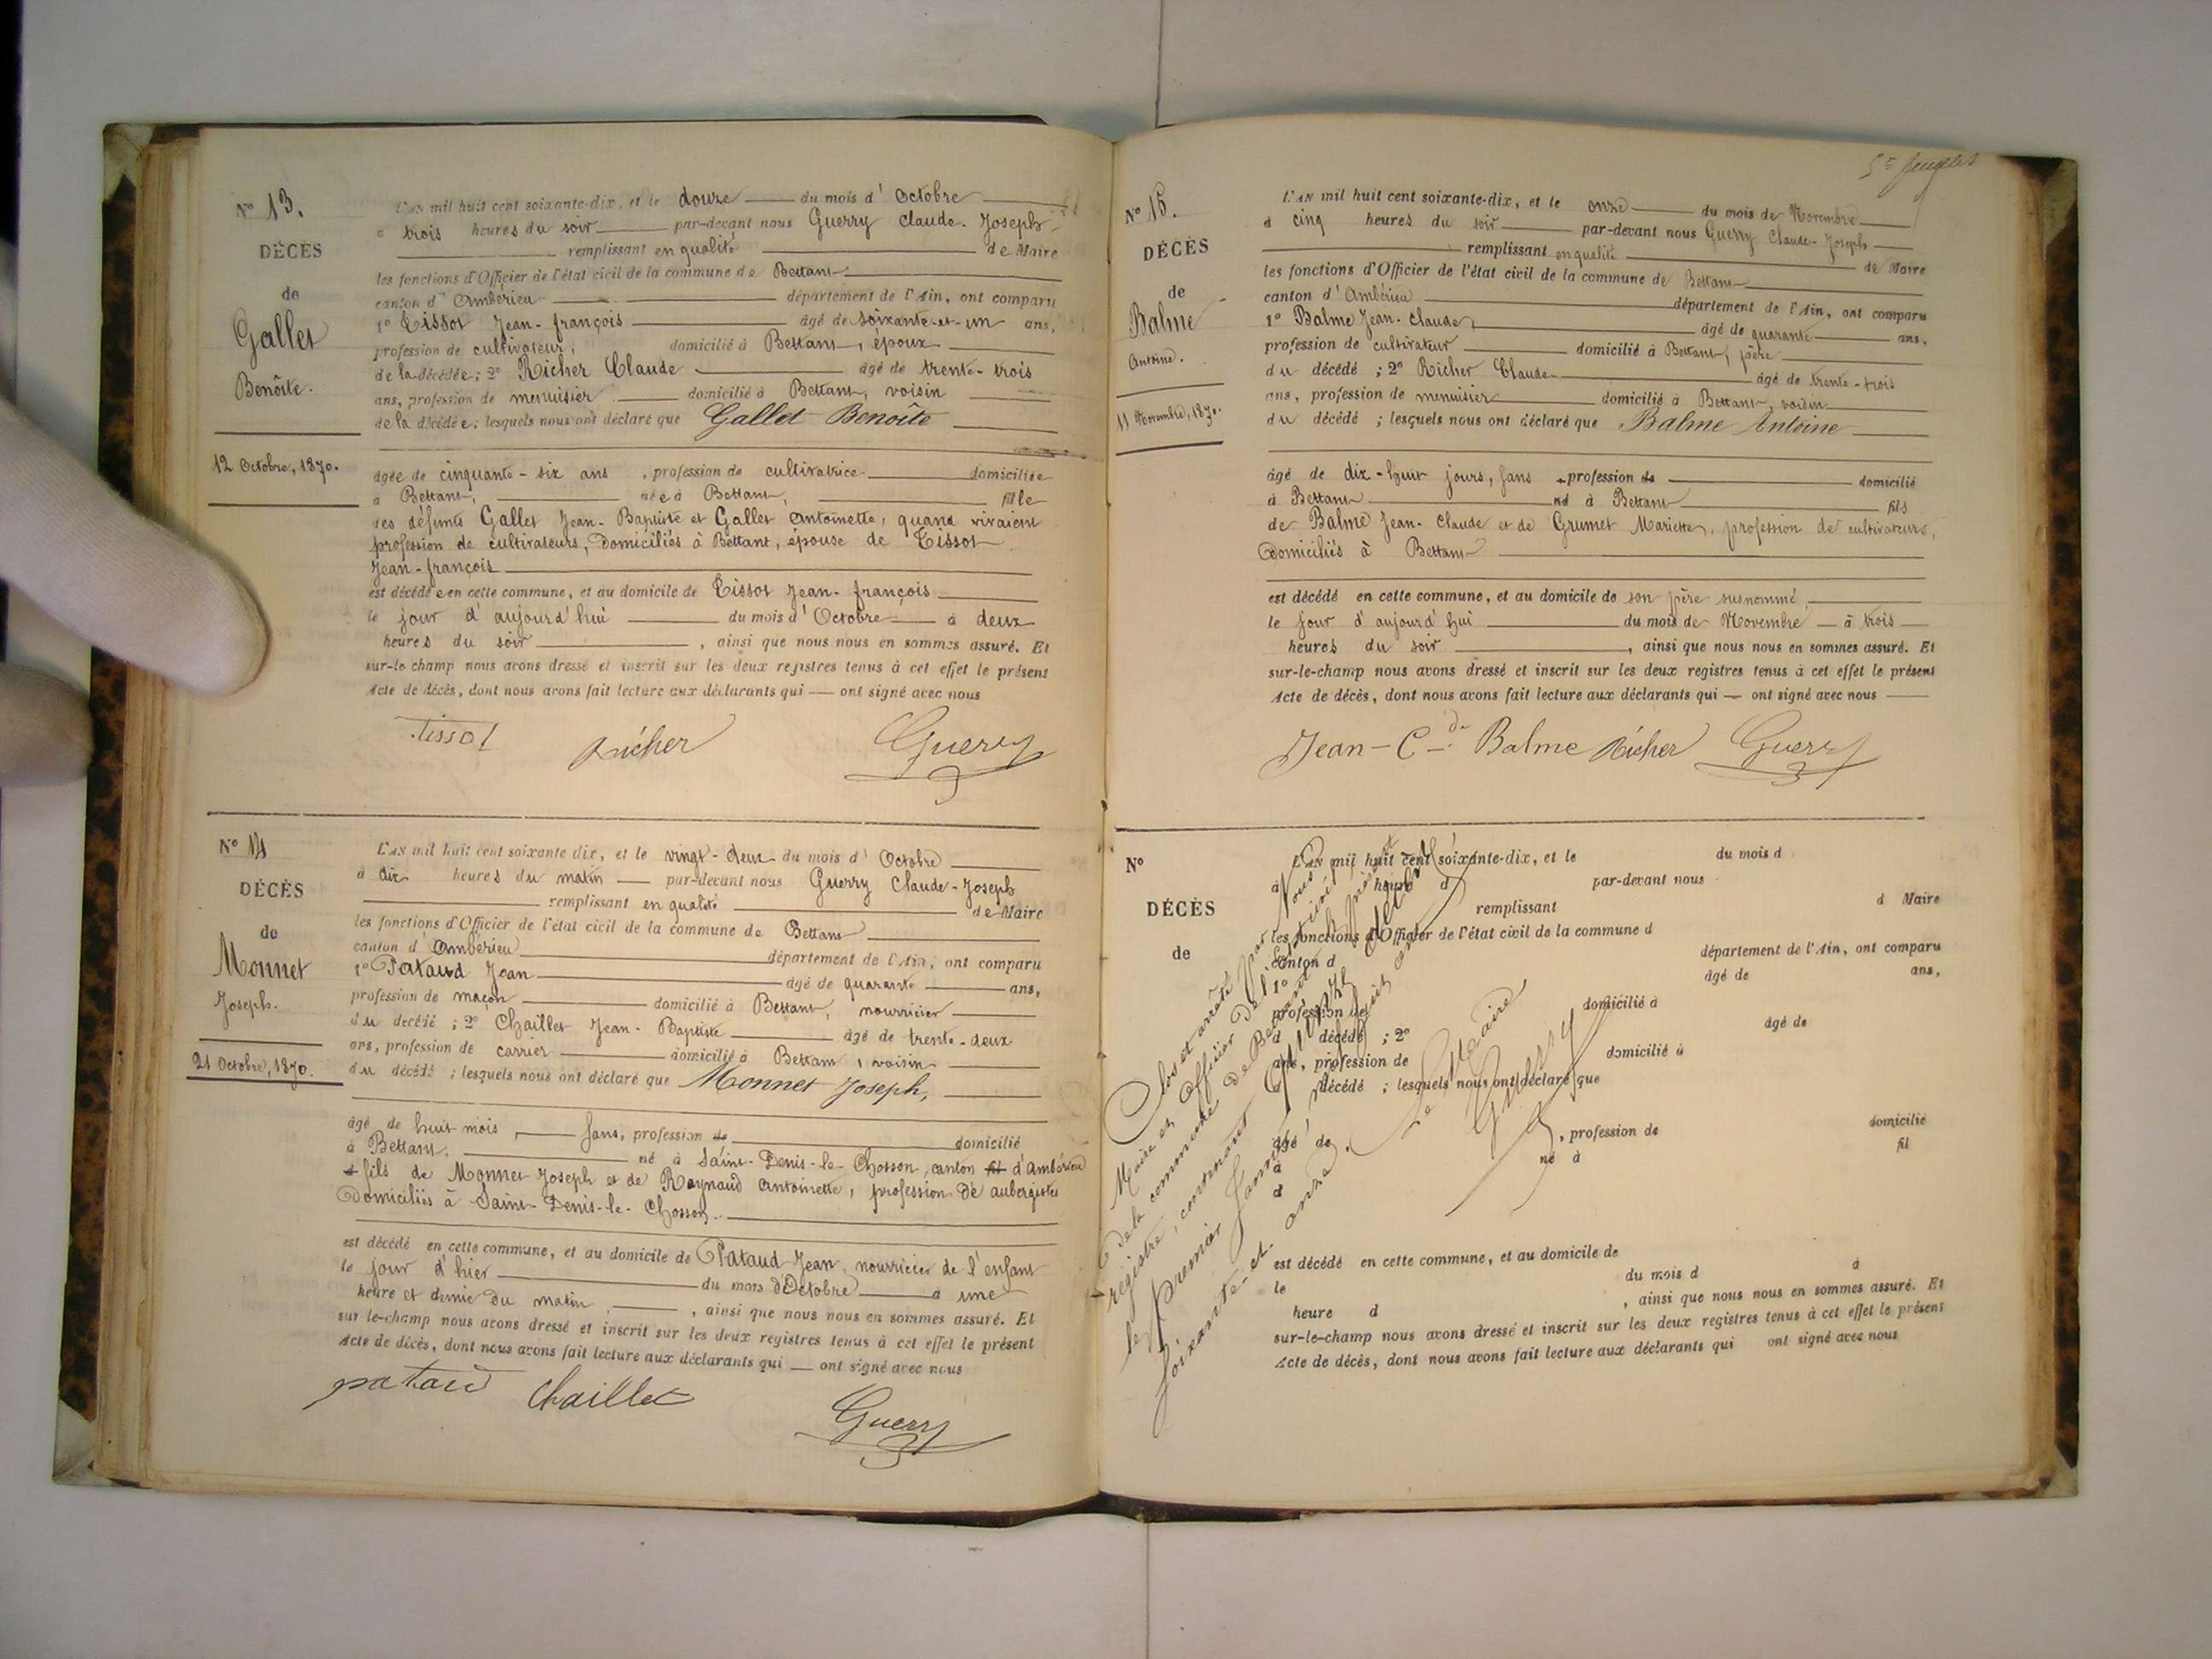 N° 13.
DÉCÈS
de
Gallet
Benoîte.
12 Octobre, 1870.
L'AN mil huit cent soixante-dix, et le douze du mois d'Octobre
à trois heures du soir par-devant nous Guerry Claude-Joseph
remplissant en qualité de Maire
les fonctions d'Officier de l'état civil de la commune de Bettant
canton d'Ambérieu département de l'Ain, ont comparu
1° Tissot Jean-françois âgé de soixante-et-un ans,
profession de cultivateur, domicilié à Bettant, époux
de la décédée; 2° Richer Claude âgé de trente-trois
ans, profession de menuisier domicilié à Bettant, voisin
de la décédée; lesquels nous ont déclaré que Gallet Benoîte
âgée de cinquante-six ans, profession de cultivatrice domiciliée
à Bettant, née à Bettant, fille
des défunts Gallet Jean-Baptiste et Gallet Antoinette, quand vivaient
profession de cultivateurs, Domiciliés à Bettant, épouse de Tissot
Jean-françois
est décédée en cette commune, et au domicile de Tissot Jean-françois
le jour d'aujourd'hui du mois d'Octobre à deux
heures du soir, ainsi que nous nous en sommes assuré. Et
sur-le-champ nous avons dressé et inscrit sur les deux registres tenus à cet effet le présent
Acte de décès, dont nous avons fait lecture aux déclarants qui — ont signé avec nous
Tissot Richer Guerry
N° 14
DÉCÈS
de
Monnet
Joseph.
21 Octobre, 1870.
L'AN mil huit cent soixante dix, et le vingt-deux du mois d'Octobre
à dix heures du matin par-devant nous Guerry Claude-Joseph
remplissant en qualité de Maire
les fonctions d'Officier de l'état civil de la commune de Bettant
canton d'Ambérieu département de l'Ain, ont comparu
1° Pataud Jean âgé de quarante ans,
profession de maçon domicilié à Bettant, nourricier
du décédé; 2° Chaillet Jean-Baptiste âgé de trente-deux
ans, profession de carrier domicilié à Bettant, voisin
du décédé; lesquels nous ont déclaré que Monnet Joseph,
âgé de huit mois, sans, profession de domicilié
à Bettant, né à Saint-Denis-le-Chosson, canton fil d'Ambérieu
d fils de Monnet Joseph et de Raynaud Antoinette, profession de aubergistes
Domiciliés à Saint-Denis-le-Chosson.
est décédé en cette commune, et au domicile de Pataud Jean, nourricier de l'enfant
le jour d'hier du mois d'Octobre à une
heure et demie du matin, ainsi que nous nous en sommes assuré. Et
sur-le-champ nous avons dressé et inscrit sur les deux registres tenus à cet effet le présent
Acte de décès, dont nous avons fait lecture aux déclarants qui — ont signé avec nous
pataud Chaillet
Guerry
N° 15.
DÉCÈS
de
Balme
Antoine.
11 Novembre, 1870.
L'AN mil huit cent soixante-dix, et le onze du mois de Novembre
à cinq heures du soir par-devant nous Guerry Claude-Joseph
remplissant en qualité de Maire
les fonctions d'Officier de l'état civil de la commune de Bettant
canton d'Ambérieu département de l'Ain, ont comparu
1° Balme Jean-Claude, âgé de quarante ans,
profession de cultivateur domicilié à Bettant, père
du décédé; 2° Richer Claude âgé de trente-trois
ans, profession de menuisier domicilié à Bettant, voisin
du décédé; lesquels nous ont déclaré que Balme Antoine
âgé de dix-huit jours, sans profession de domicilié
à Bettant né à Bettant fils
de Balme Jean-Claude et de Grumet Mariette, profession de cultivateurs,
Domiciliés à Bettant
est décédé en cette commune, et au domicile de son père susnommé
le jour d'aujourd'hui du mois de Novembre à trois
heures du soir, ainsi que nous nous en sommes assuré. Et
sur-le-champ nous avons dressé et inscrit sur les deux registres tenus à cet effet le présent
Acte de décès, dont nous avons fait lecture aux déclarants qui — ont signé avec nous
Jean-Cde Balme Richer Guerry
N°
DÉCÈS
de
L'AN mil huit cent soixante-dix, et le du mois d
à heure d par-devant nous
remplissant d Maire
les fonctions d'Officier de l'état civil de la commune d
canton d département de l'Ain, ont comparu
1° âgé de ans,
profession de domicilié à
d décédé; 2° âgé de
ans, profession de domicilié à
d décédé; lesquels nous ont déclaré que
âgé de, profession de domicilié
à né à fil
d
est décédé en cette commune, et au domicile de
le du mois d à
heure d, ainsi que nous nous en sommes assuré. Et
sur-le-champ nous avons dressé et inscrit sur les deux registres tenus à cet effet le présent
Acte de décès, dont nous avons fait lecture aux déclarants qui ont signé avec nous
Clos et arrêté par Nous
Maire et Officier de l'Etat civil
de la commune de Bettant le présent
registre, contenant quinze décès
le premier Janvier mil huit cent
soixante-et-onze.
Le Maire
Guerry